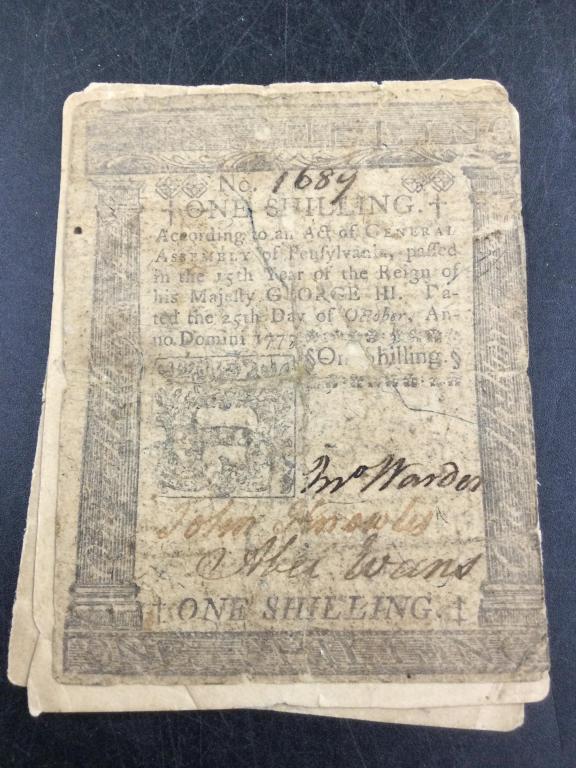 No. 1689
‡ ONE SHILLING. ‡
According to an Act of GENERAL
ASSEMBLY of Pensylvania, passed
in the 15th Year of the Reign of
his Majesty GEORGE III. Da-
ted the 25th Day of October, An-
no. Domini 177
§One Shilling.§
Jno Warder
John Knowles
Abel Evans
‡ ONE SHILLING. ‡